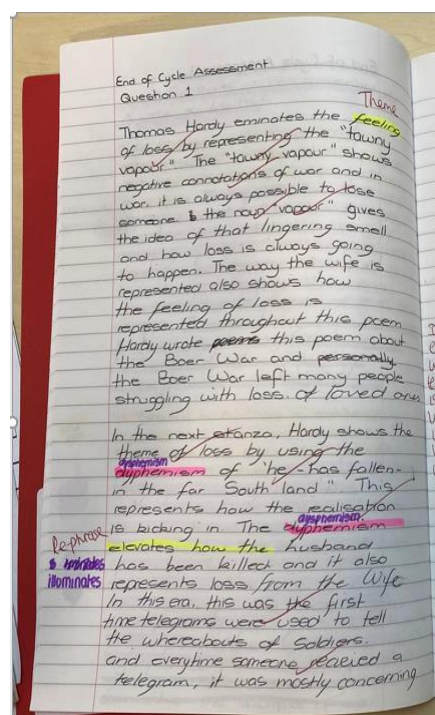 End of Cycle Assessment
Question 1
Theme
Thomas Hardy eminates the feeling
of loss by representing the "tawny
vapour". The "tawny vapour" shows
negative connotations of war and in
war, it is always possible to lose
someone the noun "vapour" gives
the idea of that lingering smell
and how loss is always going
to happen. The way the wife is
represented also shows how
the feeling of loss is
represented throughout this poem
Hardy wrote poems this poem about
the Boer War and personally
the Boer War left many people
struggling with loss. of loved ones
In the next stanza, Hardy shows the
theme of loss by using the
dysphemism
dyphemism of 'he - has fallen -
in the far South land" This
represents how the realisation
dysphemism.
is kicking in. The dyphemism
Rephrase
elevates how the husband
has been killed and it also
illominates
represents loss from the Wife
In this era, this was the first
time telegrams were used to tell
the whereabouts of Soldiers.
and everytime someone receieved a
telegram, it was mostly concerning